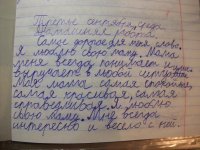 Третье октября, среда
Домашняя работа.
Самое дорогое для меня слово.
Я люблю свою маму. Мама
меня всегда понимает и
выручает в любой ситуации.
Моя мама самая спокойная,
самая красивая, самая
справедливая. Я люблю
свою маму. Мне всегда
интересно и весело с ней.